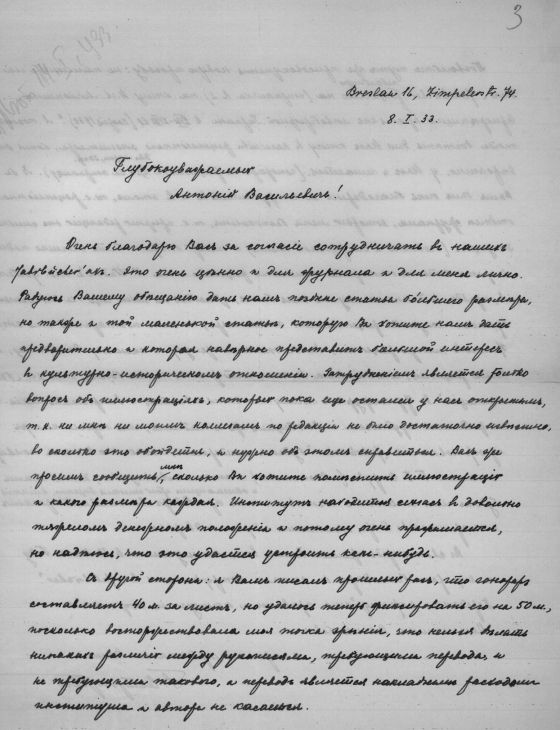 3
Breslau 16, Zimpelerstr. 74.
8. I. 33.
Глубокоуважаемый
Антоній Васильевичъ!
Очень благодарю Васъ за согласіе сотрудничать въ нашихъ
Jahrbücher'ахъ. Это очень цѣнно и для журнала и для меня лично.
Радуюсь Вашему обѣщанію дать намъ позднѣе статью бо́льшаго размѣра,
но также и той маленькой статьѣ, которую Вы хотите намъ дать
предварительно и которая навѣрное представитъ большой интересъ
въ культурно-историческомъ отношеніи. Затрудненіемъ является только
вопросъ объ иллюстраціяхъ, который пока еще остался у насъ открытымъ,
т. к. ни мнѣ ни моимъ коллегамъ по редакціи не было достаточно извѣстно,
во сколько это обойдется, и нужно объ этомъ справиться. Васъ же
просимъ сообщить мнѣ, сколько Вы хотите помѣстить иллюстрацій
и какого размѣра каждая. Институтъ находится сейчасъ въ довольно
тяжеломъ денежномъ положеніи и потому очень прижимается,
но надѣюсь, что это удастся устроить какъ-нибудь.
Съ другой стороны: я Вамъ писалъ прошлый разъ, что гонораръ
составляетъ 40 м. за листъ, но удалось теперь фиксировать его на 50 м.,
поскольку восторжествовала моя точка зрѣнія, что нельзя дѣлать
никакихъ различій между рукописями, требующими перевода, и
не требующими такового, и переводъ является накладнымъ расходомъ
института и автора не касается.